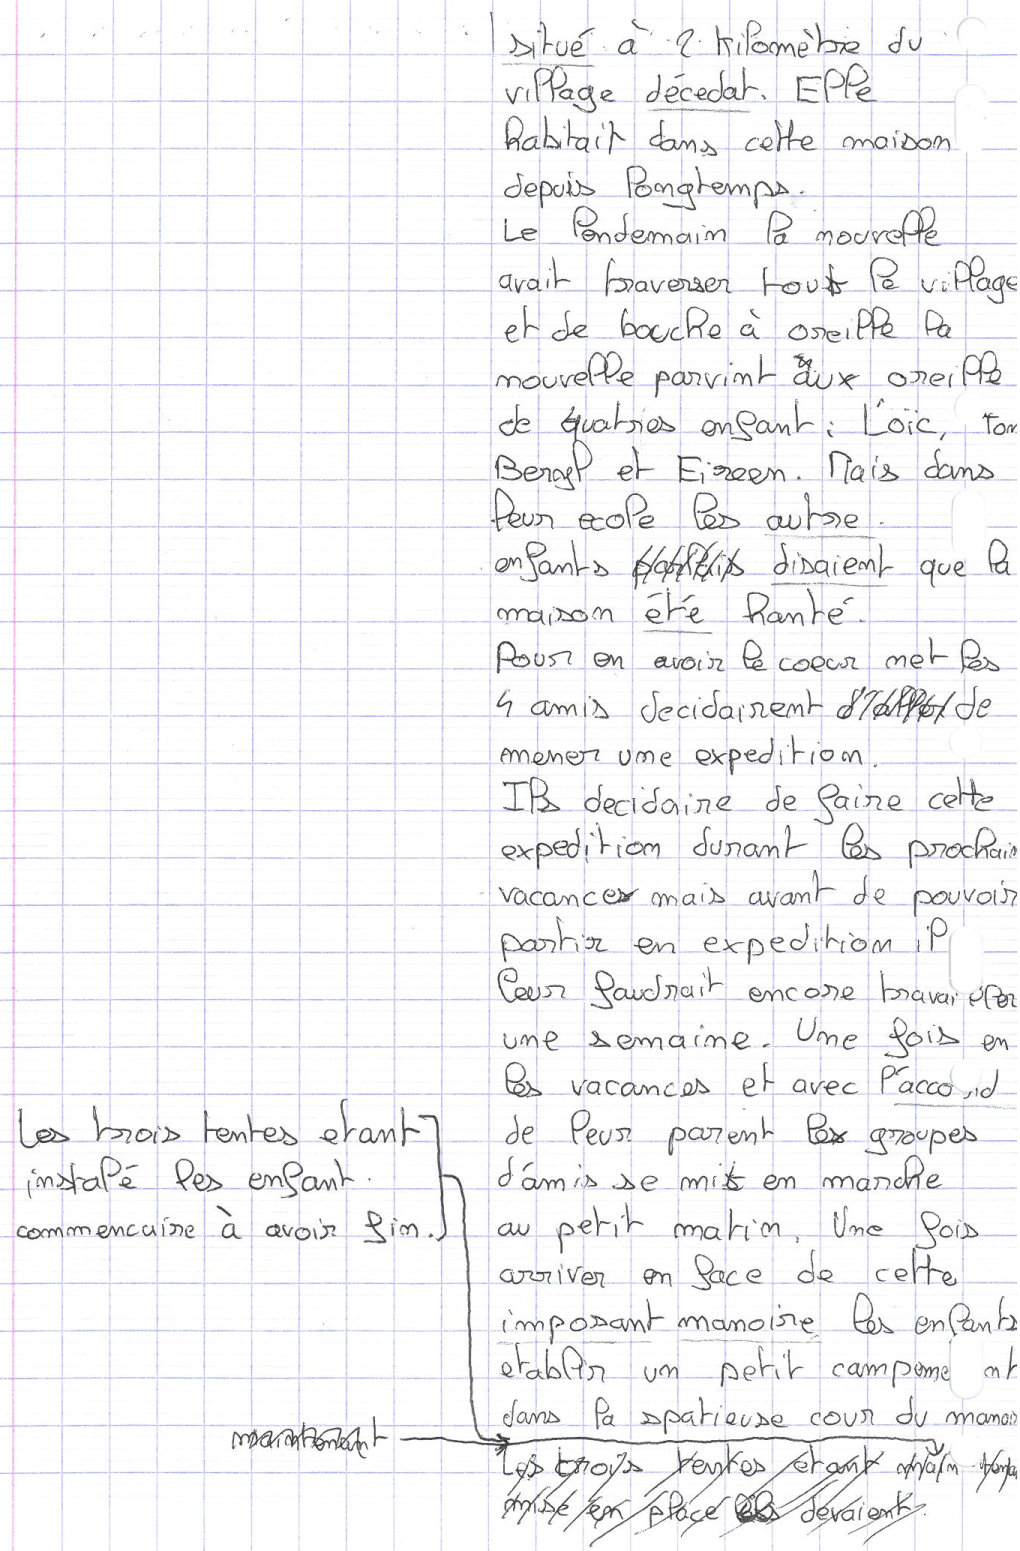 situé à 2 kilomètre du
village décedat. Elle
habitait dans cette maison
depuis longtemps.
Le lendemain la nouvelle
avait traverser tout le village
et de bouche à oreille la
nouvelle parvint aux oreille
de quatres enfant : Loïc, Tom
Beryl et Eireen. Mais dans
leur ecole les autre
enfants disaient que la
maison été hanté.
Pour en avoir le coeur met les
4 amis decidairent de
mener une expedition.
Ils decidaire de faire cette
expedition durant les prochain
vacances mais avant de pouvoir
partir en expedition il
leur faudrait encore travailler
une semaine. Une fois en
les vacances et avec l'accord
de leur parent les groupes
d'amis se mit en marche
au petit matin. Une fois
arriver en face de cette
imposant manoire les enfants
etablir un petit campement
dans la spatieuse cour du manoir
Les trois tentes etant
instalé les enfant.
commencaire à avoir fim.
maintenant
Les trois tentes etant
mise en place devaient.